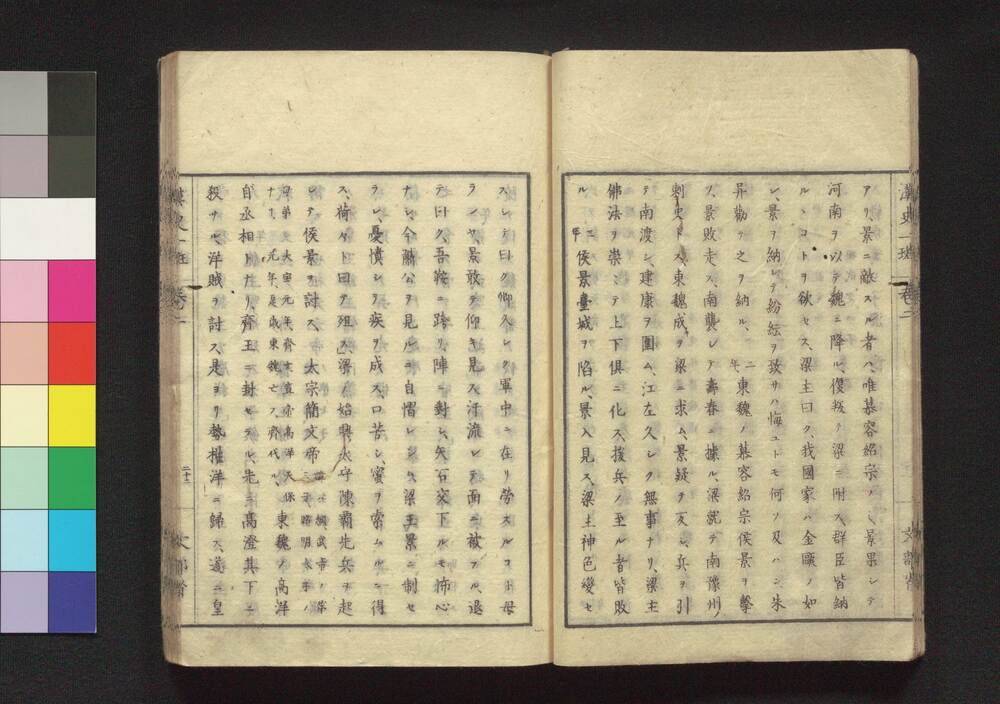 漢史一班 卷二 文部省
アリ、景ニ敵スル者ハ、唯慕容紹宗ノミ、景果シテ
河南ヲ以テ魏ニ降ル、復叛テ梁ニ附ス、群臣皆納
ルヽコトヲ欲セス、梁主曰ク、我國家ハ金甌ノ如
シ、景ヲ納レテ紛紜ヲ致サハ悔ユトモ何ソ及ハン、朱
异勸テ之ヲ納ル、二年、東魏ノ慕容紹宗侯景ヲ擊
ツ、景敗走ス、南襲シテ壽春ニ據ル、梁就テ南豫州ノ
刺史トス、東魏成ヲ梁ニ求ム、景疑ヲ反シ、兵ヲ引
テ南渡シ、建康ヲ圍ム、江左久シク無事ナリ、梁主
佛法ヲ崇ヒテ上下俱ニ化ス、援兵ノ至ル者皆敗
ル、三年侯景臺城ヲ陷ル、景入見ス、梁主神色變セ
スシテ曰ク、卿久シク軍中ニ在リ勞スルコト毋
ランヤ、景敢テ仰キ見ス、汗流レテ面ニ被フル、退
テ曰ク、吾鞍ニ跨リ、陣ニ對シ、矢石交下ルモ怖心
ナシ、今蕭公ヲ見ルニ自慴レシム、梁主景ニ制セ
ラレ、憂憤シテ疾ヲ成ス、口苦シ、蜜ヲ索ムルニ得
ス、荷々ト曰テ殂ス、梁ノ始興太守陳霸先兵ヲ起
シテ侯景ヲ討ス、太宗簡文帝
兄弟、大寶元年、齊
東魏ノ高洋
自丞相トナリ、齊王ニ封セラル、先ニ高澄其下ニ
殺サル、洋賊ヲ討ス、是ヨリ勢權洋ニ歸ス、遂ニ皇
漢史一班 卷二 二十二 文部省